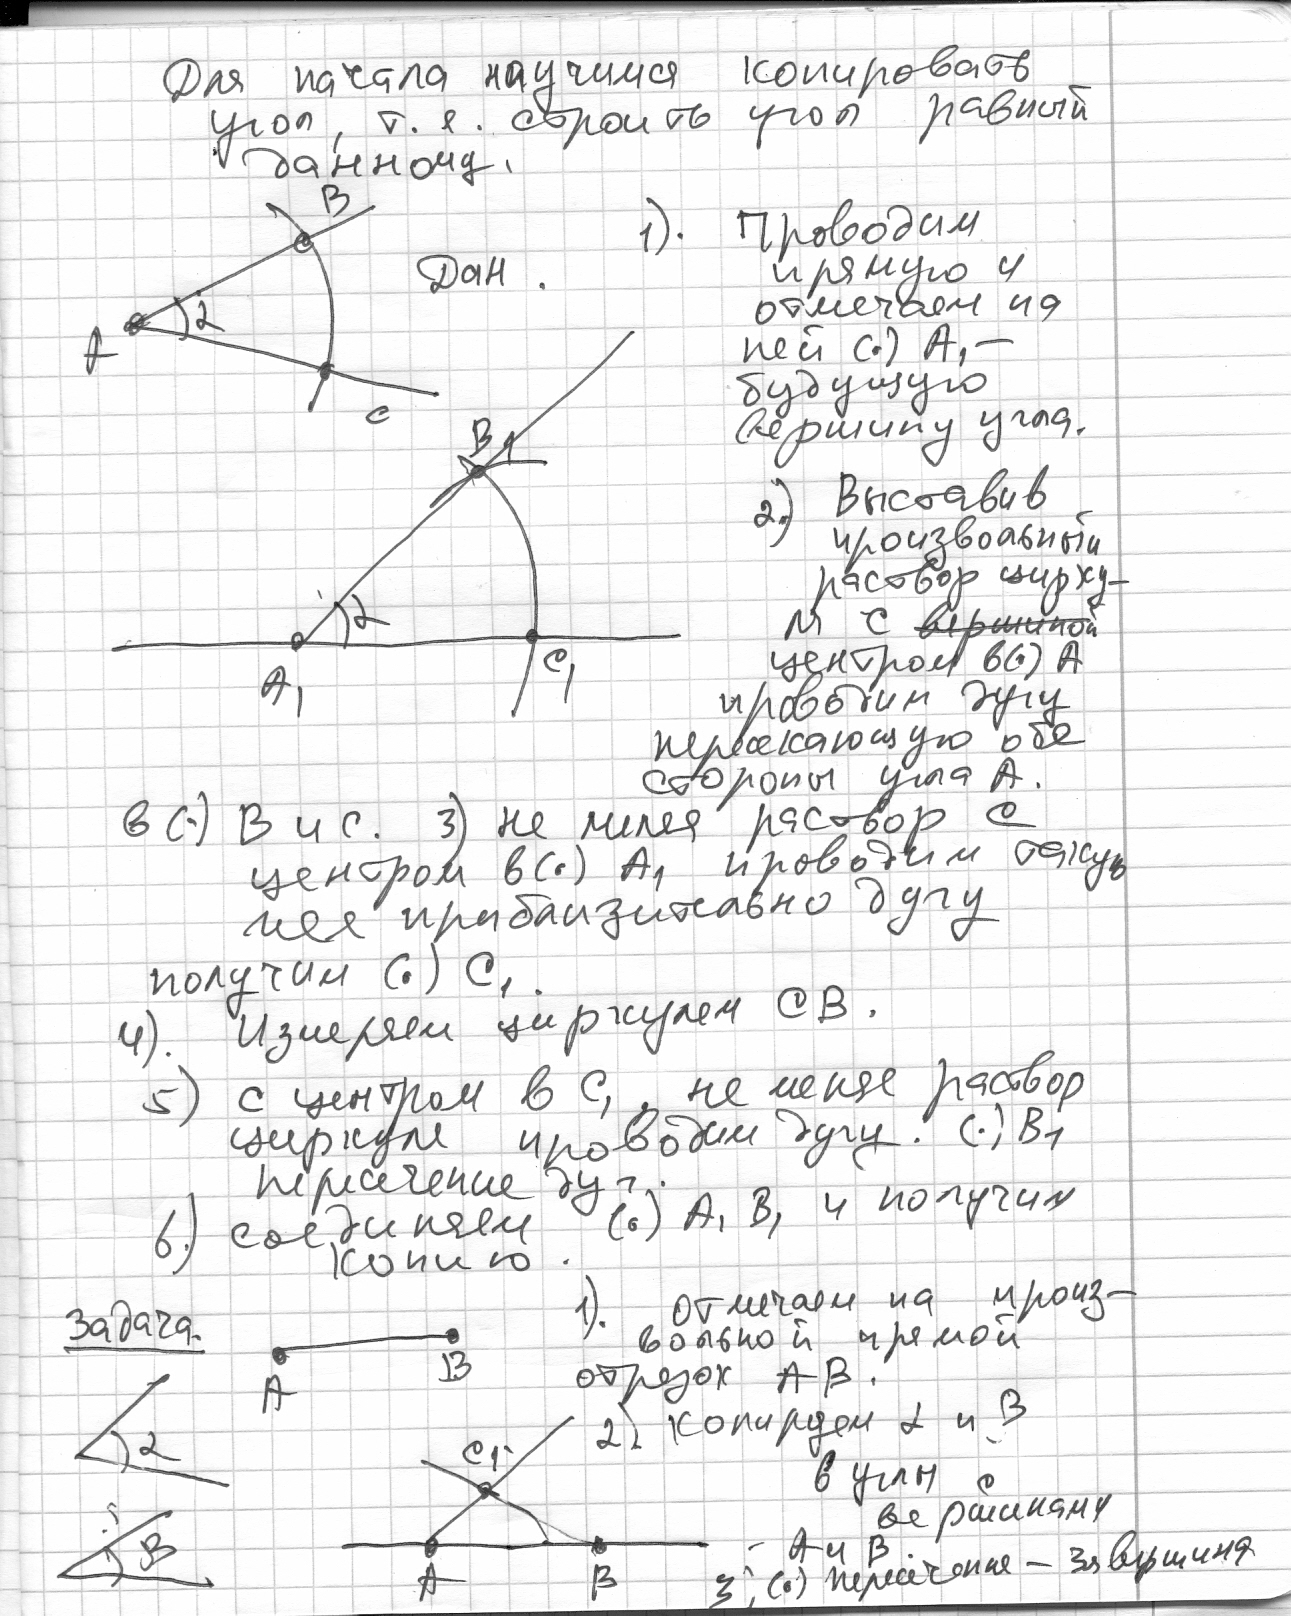 Для начала научимся копировать
угол, т.е. строить угол равный
данному.
B
Дан.
α
A
C
1). Проводим
прямую и
отмечаем на
ней (·) A₁ —
будущую
вершину угла.
B1
α
A₁
C₁
2.) Выставив
произвольный
раствор цирку-
ля с вершиной
центром в (·) A
проводим дугу
пересекающую обе
стороны угла A.
в (·) B и C. 3) не меняя раствор с
центром в (·) A₁ проводим такую
же приблизительно дугу
получим (·) C₁.
4). Измеряем циркулем CB.
5) с центром в C₁, не меняе раствор
циркуля проводим дугу. (·) B1
пересечение дуг.
6.) соединяем (·) A₁ B₁ и получим
копию.
Задача.
A
B
α
B
1). Отмечаем на произ-
вольной прямой
отрезок AB.
2). Копируем α и B
в углы с
вершинами
A и B
3) (·) пересечение — 3я вершина
C1
A
B